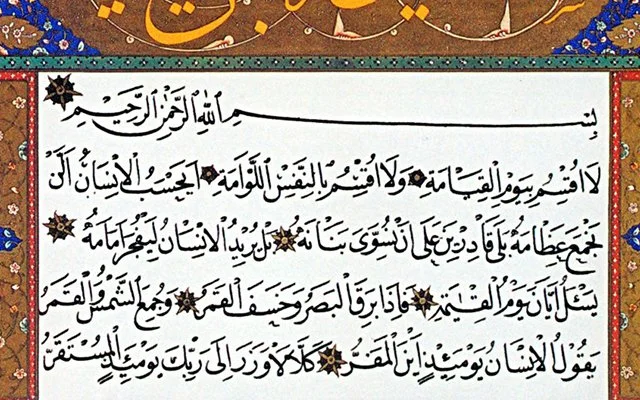 بِسْمِ ٱللَّهِ ٱلرَّحْمَٰنِ ٱلرَّحِيمِ
لَا اُقْسِمُ بِيَوْمِ الْقِيَامَةِ وَلَا اُقْسِمُ بِالنَّفْسِ اللَّوَّامَةِ اَيَحْسَبُ الْاِنْسَانُ اَلَّنْ
نَجْمَعَ عِظَامَهُ بَلٰى قَادِرِينَ عَلٰى اَنْ نُسَوِّىَ بَنَانَهُ بَلْ يُرِيدُ الْاِنْسَانُ لِيَفْجُرَ اَمَامَهُ
يَسْئَلُ اَيَّانَ يَوْمُ الْقِيٰمَةِ فَاِذَا بَرِقَ الْبَصَرُ وَخَسَفَ الْقَمَرُ وَجُمِعَ الشَّمْسُ وَالْقَمَرُ
يَقُولُ الْاِنْسَانُ يَوْمَئِذٍ اَيْنَ الْمَفَرُّ كَلَّا لَا وَزَرَ اِلٰى رَبِّكَ يَوْمَئِذٍ الْمُسْتَقَرُّ